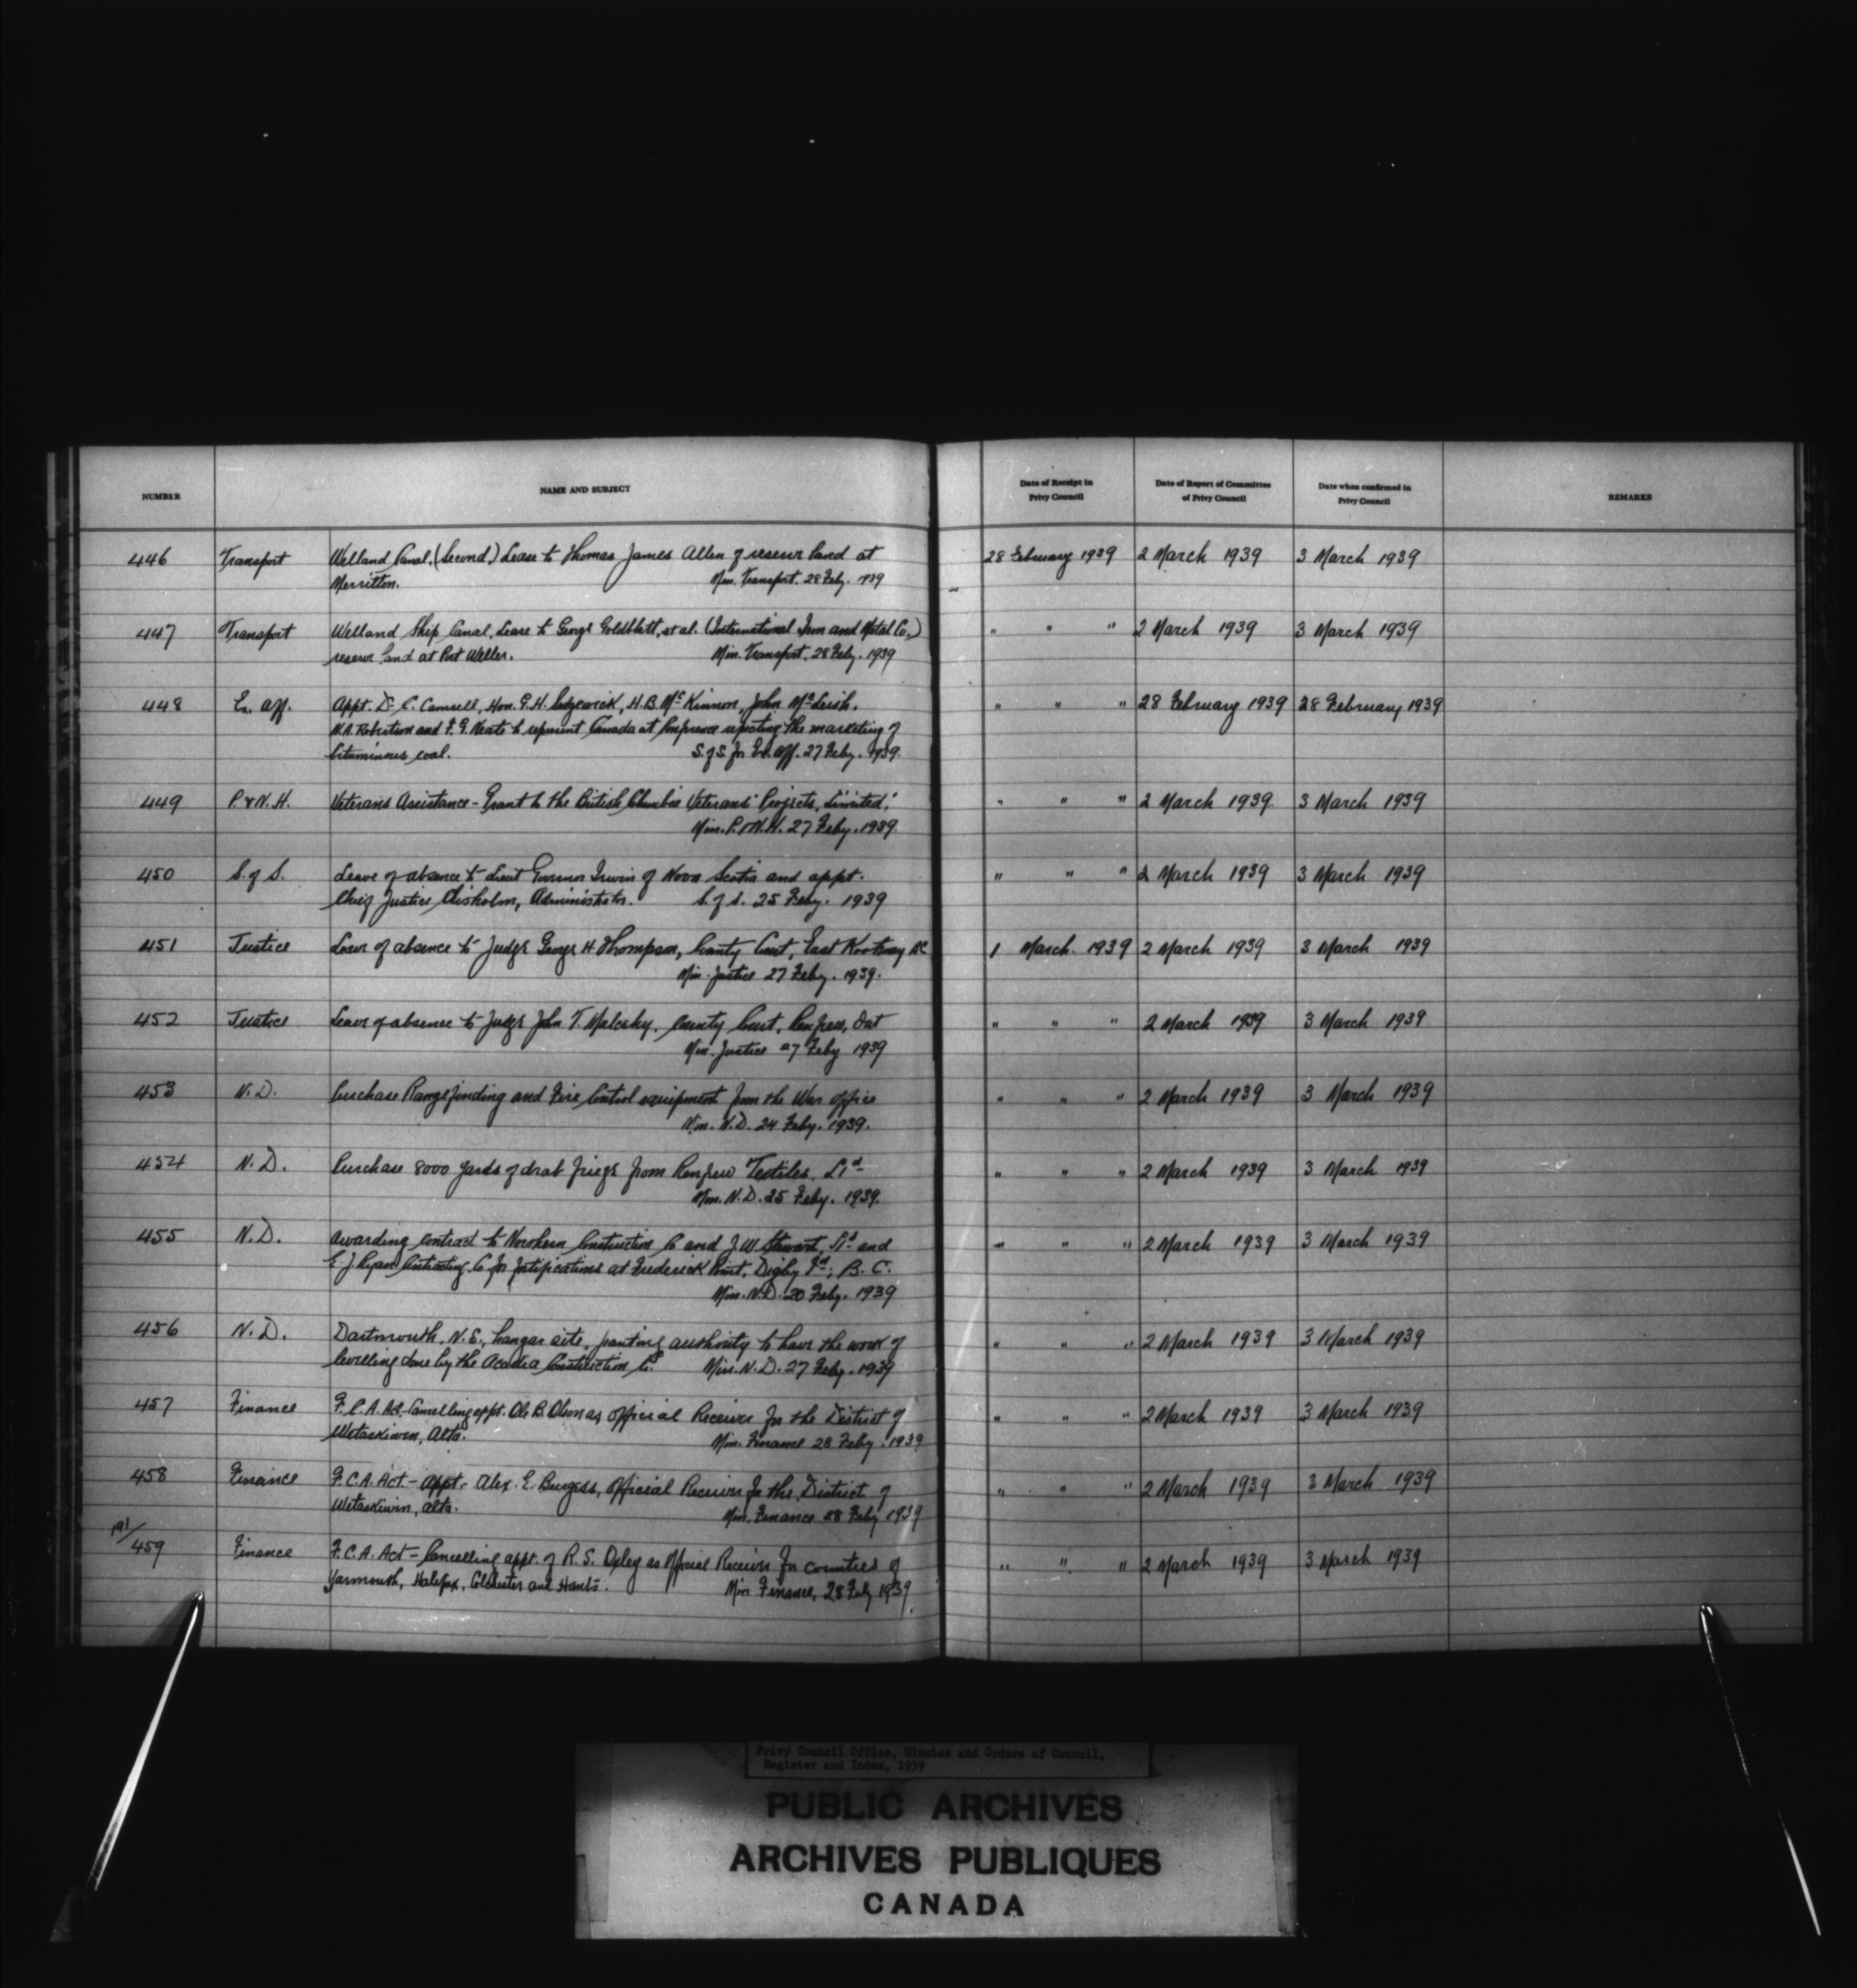 NUMBER NAME AND SUBJECT Date of Receipt in Privy Council Date of Report of Committee of Privy Council Date when confirmed in Privy Council REMARKS
446 Transport Welland Canal, (Second) Lease to Thomas James Allen of reserve land at 28 February 1939 2 March 1939 3 March 1939
Merritton. Min. Transport. 28 Feby. 1939
447 Transport Welland Ship Canal, Lease to George Goldblatt, et al. (International Iron and Metal Co.) " " " 2 March 1939 3 March 1939
reserve land at Port Weller. Min. Transport. 28 Feby. 1939
448 Ex. Aff. Appt. Dr C. Camsell, Hon. G.H. Sedgewick, H.B. McKinnon, John McLeish, " " " 28 February 1939 28 February 1939
N.A. Robertson and F. G. Neate to represent Canada at Conference respecting the marketing of
bituminous coal. S. of S. for Ex. Aff. 27 Feby. 1939.
449 P. & N. H. Veterans Assistance - Grant to the British Columbia Veterans' Projects, Limited." " " " 2 March 1939. 3 March 1939
Min. P. & N. H. 27 Feby. 1939.
450 S. of S. Leave of absence to Lieut Governor Irwin of Nova Scotia and appt. " " " 2 March 1939 3 March 1939
Chief Justice Chisholm, Administrator. S. of S. 25 Feby. 1939
451 Justice Leave of absence to Judge George H Thompson, County Court, East Kootenay BC 1 March. 1939 2 March 1939 3 March 1939
Min. Justice 27 Feby. 1939.
452 Justice Leave of absence to Judge John T. County Court, Renfrew, Ont " " " 2 March 1939 3 March 1939
Min. Justice 27 Feby 1939
453 N. D. Purchase Rangefinding and Fire Control equipment from the War Office " " " 2 March 1939 3 March 1939
Min. N. D. 24 Feby. 1939.
454 N. D. Purchase 8000 yards of drab frieze from Renfrew Textiles, Ltd " " " 2 March 1939 3 March 1939
Min. N. D. 25 Feby. 1939.
455 N. D. Awarding contract to Northern Construction Co and J. W Stewart, Ltd and " " " 2 March 1939 3 March 1939
E. J Ryan Contracting Co for fortifications at Frederick Point, Digby Id; B. C.
Min. N. D. 20 Feby. 1939
456 N. D. Dartmouth, N.S., hangar site, granting authority to have the work of " " " 2 March 1939 3 March 1939
levelling done by the Acadia Construction Co. Min. N. D. 27 Feby. 1939
457 Finance F. C. A. Act - Cancelling appt. Ole B. Olson as Official Receiver for the District of " " " 2 March 1939 3 March 1939
Wetaskiwin, Alta. Min. Finance 28 Feby. 1939
458 Finance F. C. A. Act - Appt - Alex. E. Burgess, Official Receiver for the District of " " " 2 March 1939 3 March 1939
Wetaskiwin, Alta. Min. Finance 28 Feby 1939
191/459 Finance F. C. A. Act - Cancelling appt. of R. S. as Official Receiver for counties of " " " 2 March 1939 3 March 1939
Yarmouth, Halifax, Colchester and Hants. Min. Finance, 28 Feby 1939.
Privy Council Office, Minutes and Orders of Council,
Register and Index, 1939
PUBLIC ARCHIVES
ARCHIVES PUBLIQUES
CANADA